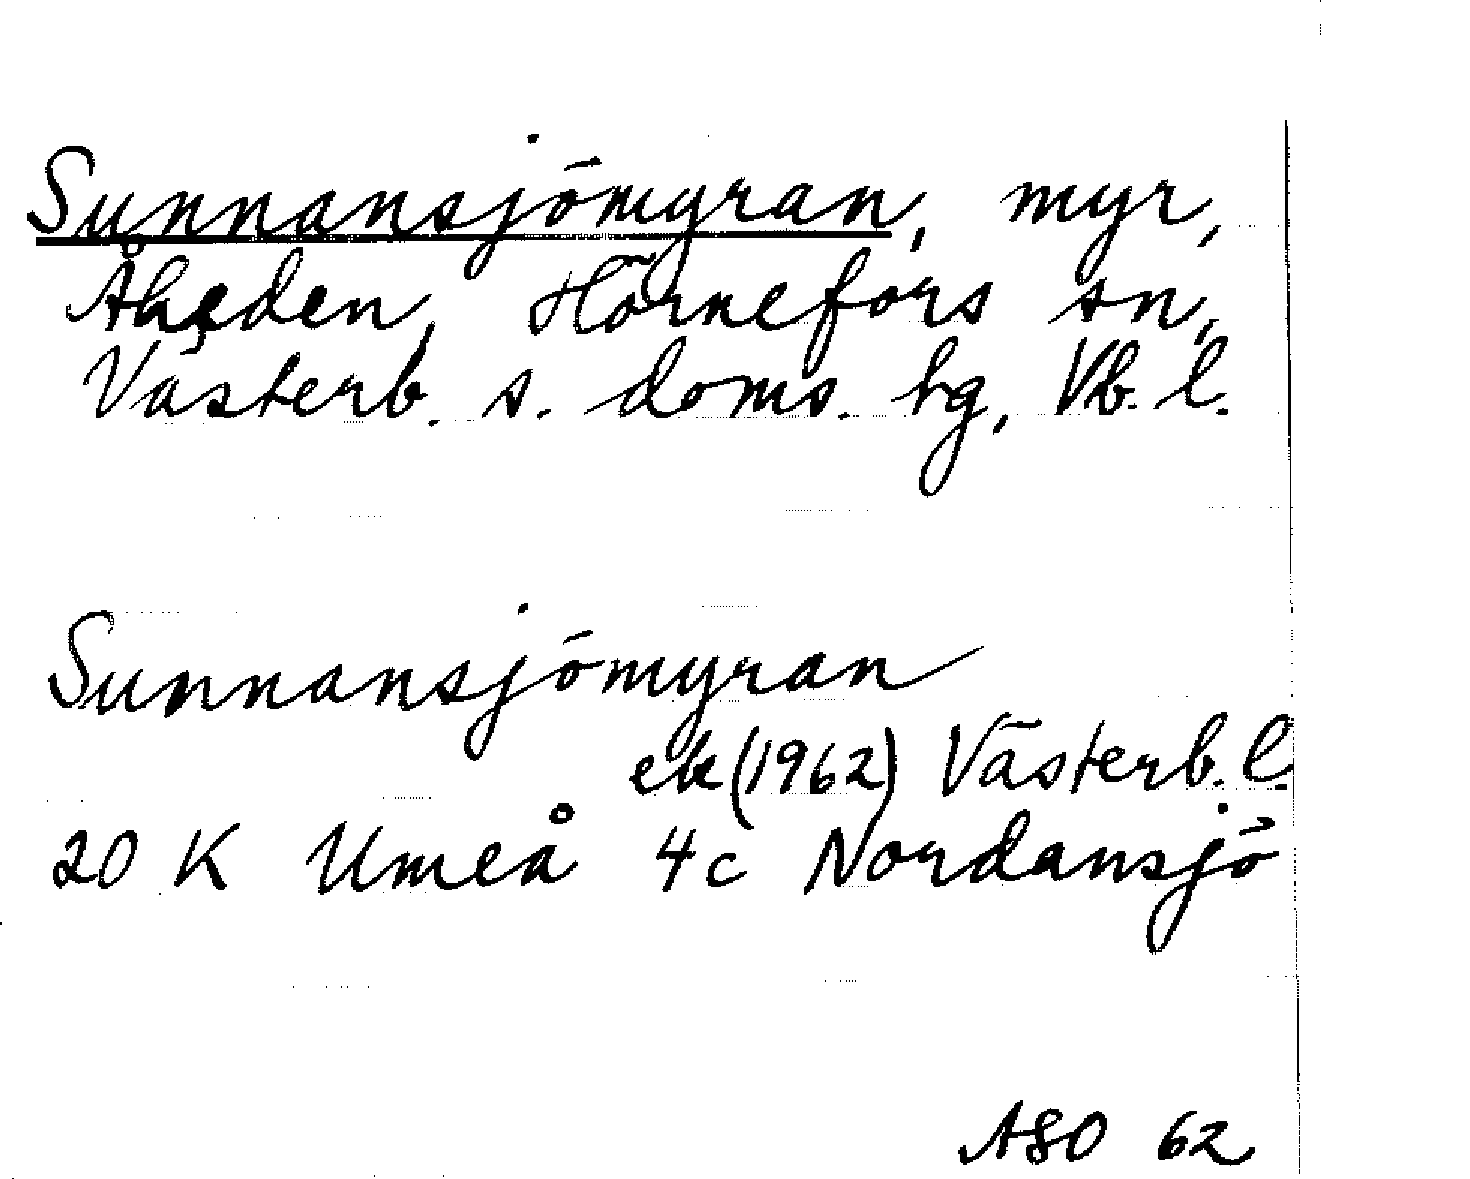 Sunnansjömyran, myr,
Åheden, Hörnefors sn,
Västerb. s. doms. tg, Vb. l.
Sunnansjömyran
ek (1962) Västerb. l.
20 K Umeå 4c Nordansjö
ASO 62